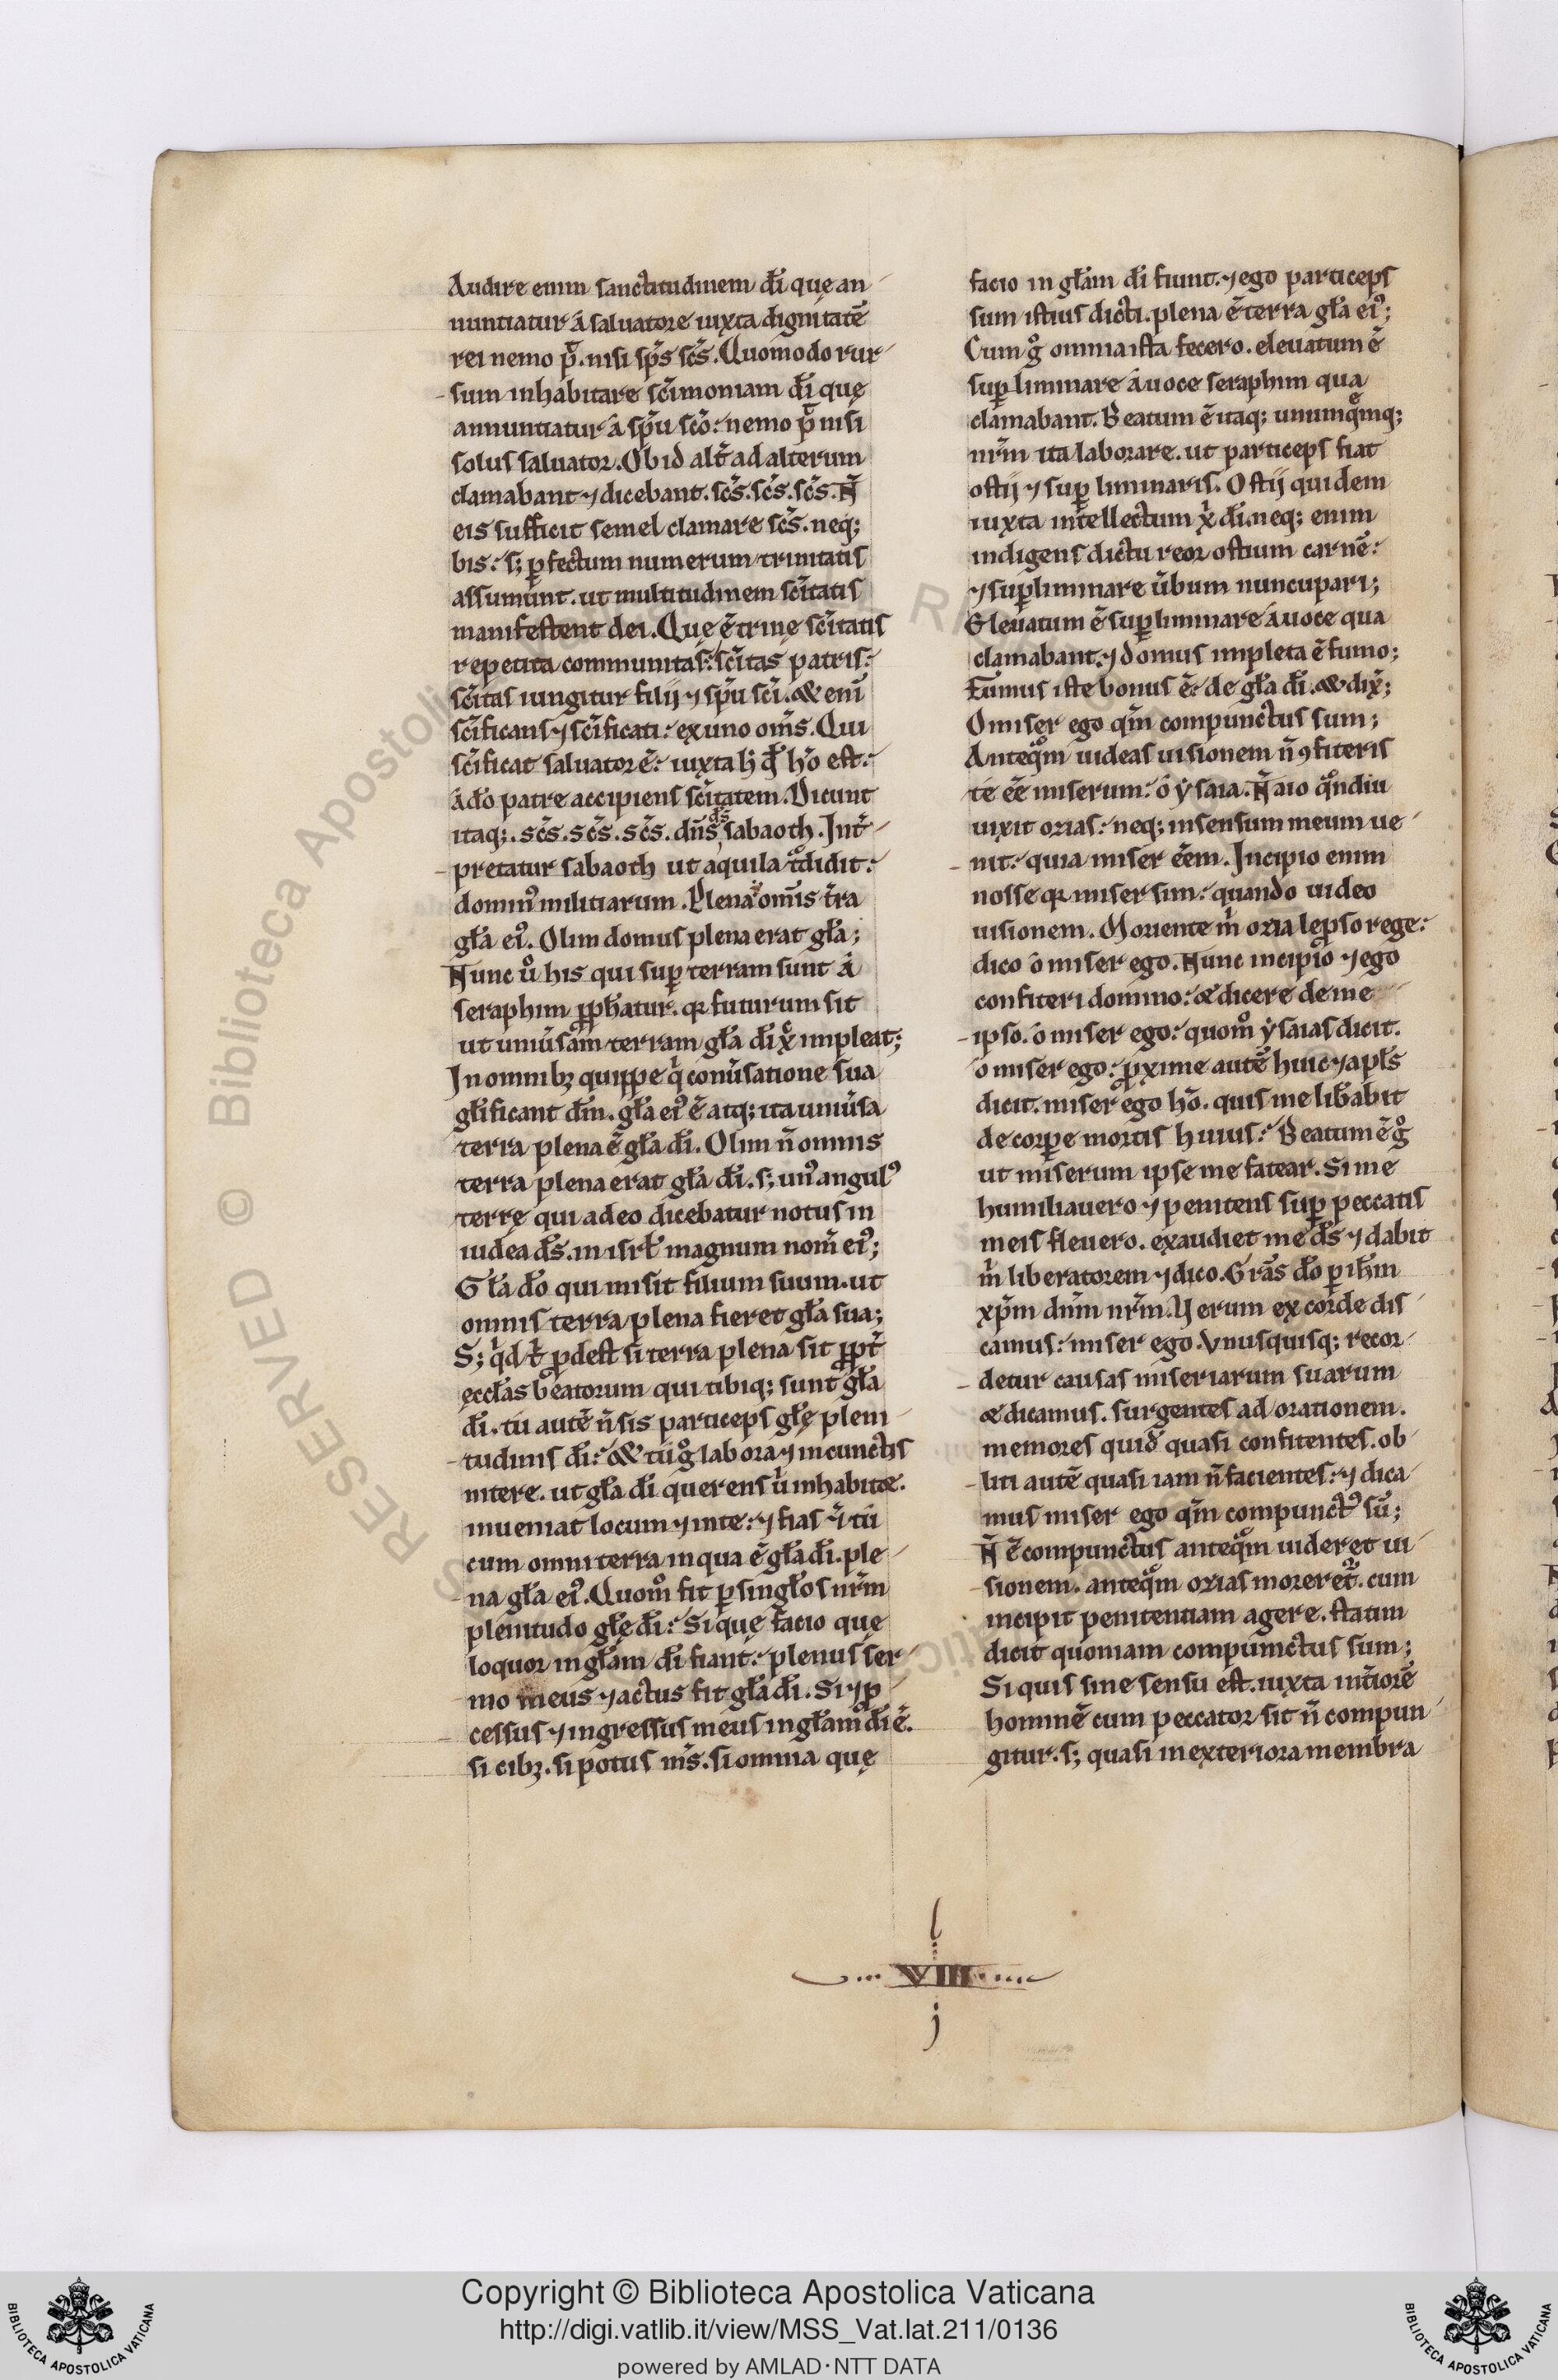 Audire enim sanctitudinem dī quę an-
nuntiatur á saluatore iuxta dignitatē
rei nemo p̄. nisi sp̄s sc̄s. Quomodo rur-
sum inhabitare sc̄imoniam dī quę
annuntiatur á sp̄u sc̄o: nemo p̄ nisi
solus saluator. Ob id alt̄ ad alterum
clamabant ⁊ dicebant. sc̄s. sc̄s. sc̄s. N̄
eis sufficit semel clamare sc̄s. neq;
bis: s; ꝑfectum numerum trinitatis
assumunt. ut multitudinem sc̄itatis
manifestent dei. Quę ē trinę sc̄itatis
repetita communitas: sc̄itas patris:
sc̄itas iungitur filij ⁊ sp̄u sc̄i. & enī
sc̄ificans ⁊ sc̄ificati: ex uno om̄s. Qui
sc̄ificat saluator ē: iuxta h̵ qđ hō est:
á dō patre accipiens sc̄itatem. Dicunt
itaq;. sc̄s. sc̄s. sc̄s. dn̄s d̄s sabaoth. Int̄-
pretatur sabaoth ut aquila t̄didit:
domin᾽ militiarum. Plena om̄is t̄ra
gła ei᾽. Olim domus plena erat gła;
Nunc ů his qui suꝑ terram sunt á
seraphim ꝓph̄atur. qꝛ futurum sit
ut uniůsam terram gła dī x̄ impleat;
In omnibꝫ quippe q̇ conůsatione sua
głificant dm̄. gła ei᾽ ē atq; ita uniůsa
terra plena ē gła dī. Olim n̄ omnis
terra plena erat gła dī. s; un᾽ angul᾽
terrę qui adeo dicebatur notus in
iudea d̄s. in isrł magnum nom̄ ei᾽;
Gła dō qui misit filium suum. ut
omnis terra plena fieret gła sua;
S; q̇d t̄ ꝓdest si terra plena sit ꝓpt̄
ęccłas beatorum qui ubiq; sunt gła
dī. tu autē n̄ sis particeps głę pleni-
tudinis dī: & tu gͦ labora ⁊ in cunctis
nitere. ut gła dī querens u̇ inhabitæ.
inueniat locum ⁊ in te: ⁊ fias ⁊ tu
cum omni terra in qua ē gła dī. ple-
na gła ei᾽. Quom̊ fit ꝑ singłos nr̄m
plenitudo głę dī: Si quę facio quę
loquor in głam dī fiant: plenus ser-
mo meus ⁊ actus fit gła dī. Si ⁊ ꝓ-
cessus ⁊ ingressus meus in głam dī ē.
si cibꝫ. si potus m̄s. si omnia quę
facio in głam dī fiunt. ⁊ ego particeps
sum istius dicti. plena ē terra gła ei᾽;
Cum gͦ omnia ista fecero. eleuatum ē
suꝑliminare á uoce seraphim qua
clamabant. Beatum ē itaq; unumq̄mq;
nr̄m ita laborare. ut particeps fiat
ostij ⁊ suꝑliminaris. Ostij quidem
iuxta intellectum x̄ dī. neq; enim
indigens dictu reor ostium carnē:
⁊ suꝑliminare ůbum nuncupari;
Eleuatum ē suꝑliminare á uoce qua
clamabant. ⁊ domus impleta ē fumo;
Fumus iste bonus ē: de gła dī. & dix̄;
O miser ego qm̄ compunctus sum;
Anteqͣm uideas uisionem n̄ ꝯfiteris
te ēē miserum: ó ẏsaia. N̄ aio qͣndiu
uixit ozias: neq; in sensum meum ue-
nit: quia miser ēēm. Incipio enim
nosse qꝛ miser sim: quando uideo
uisionem. Moriente ṁ ozia lepso rege:
dico ó miser ego. Nunc incipio ⁊ ego
confiteri domino: & dicere de me
ipso. ó miser ego: quom̊ ẏsaias dicit.
ó miser ego: ꝓxime autē huic ⁊ apłs
dicit. miser ego hō. quis me lib̄abit
de corꝑe mortis huius: Beatum ē gͦ
ut miserum ipse me fatear. Si me
humiliauero ⁊ penitens suꝑ peccatis
meis fleuero. exaudiet me d̄s ⁊ dabit
ṁ liberatorem ⁊ dico. Grās dō ꝑ ih̄m
xp̄m dn̄m nr̄m. Ẏerum ex corde dis-
camus: miser ego. Vnusquisq; recor-
detur causas miseriarum suarum
& dicamus. surgentes ad orationem.
memores quid̄ quasi confitentes. ob-
liti autē quasi iam n̄ facientes: ⁊ dica-
mus miser ego qm̄ compunct᾽ sū;
N̄ ē compunctus anteqͣm uideret ui-
sionem. anteqͣm ozias moreret̄. cum
incipit penitentiam agere. statim
dicit quoniam compunctus sum;
Si quis sine sensu est. iuxta int̄iorē
hominē cum peccator sit n̄ compun-
gitur. s; quasi in exteriora membra
VIII
RESERVED © Biblioteca Apostolica
Copyright © Biblioteca Apostolica Vaticana
http://digi.vatlib.it/view/MSS_Vat.lat.211/0136
powered by AMLAD·NTT DATA
BIBLIOTECA APOSTOLICA VATICANA
BIBLIOTECA APOSTOLICA VATICANA